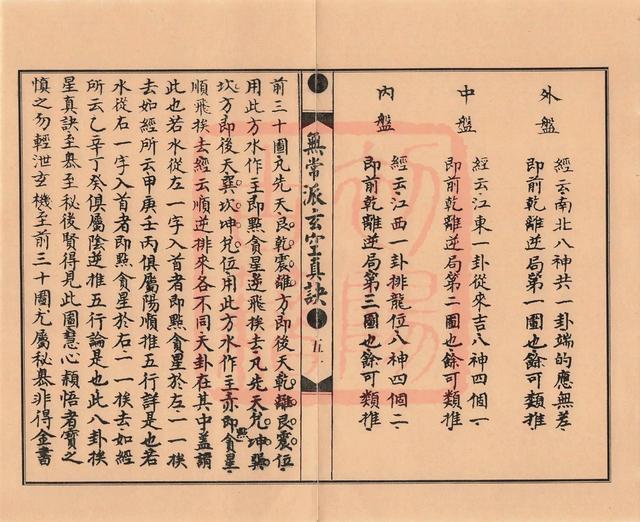 外盤
經云南北八神共一卦端的應無差
即前乾離逆局第一圖也餘可類推
中盤
經云江東一卦從來吉八神四個一
即前乾離逆局第二圖也餘可類推
內盤
經云江西一卦排龍位八神四個二
即前乾離逆局第三圖也餘可類推
無常派玄空真訣
五一
前三十圖凡先天艮乾震離方即後天乾離艮震位
用此方水作主即點貪星逆飛挨去凡先天兌坤巽
坎方即後天巽坎坤兌位用此方水作主亦即點貪星
順飛挨去經云順逆排來各不同天卦在其中蓋謂
此也若水從左一字入首者即點貪星於左一一挨
去如經所云甲庚壬丙俱屬陽順推五行詳是也若
水從右一字入首者即點貪星於右一一挨去如經
所云乙辛丁癸俱屬陰逆推五行論是也此八卦挨
星真訣至慕至秘後賢得見此圖慧心穎悟者寶之
慎之勿輕泄玄機至前三十圖尤屬秘慕非得金書